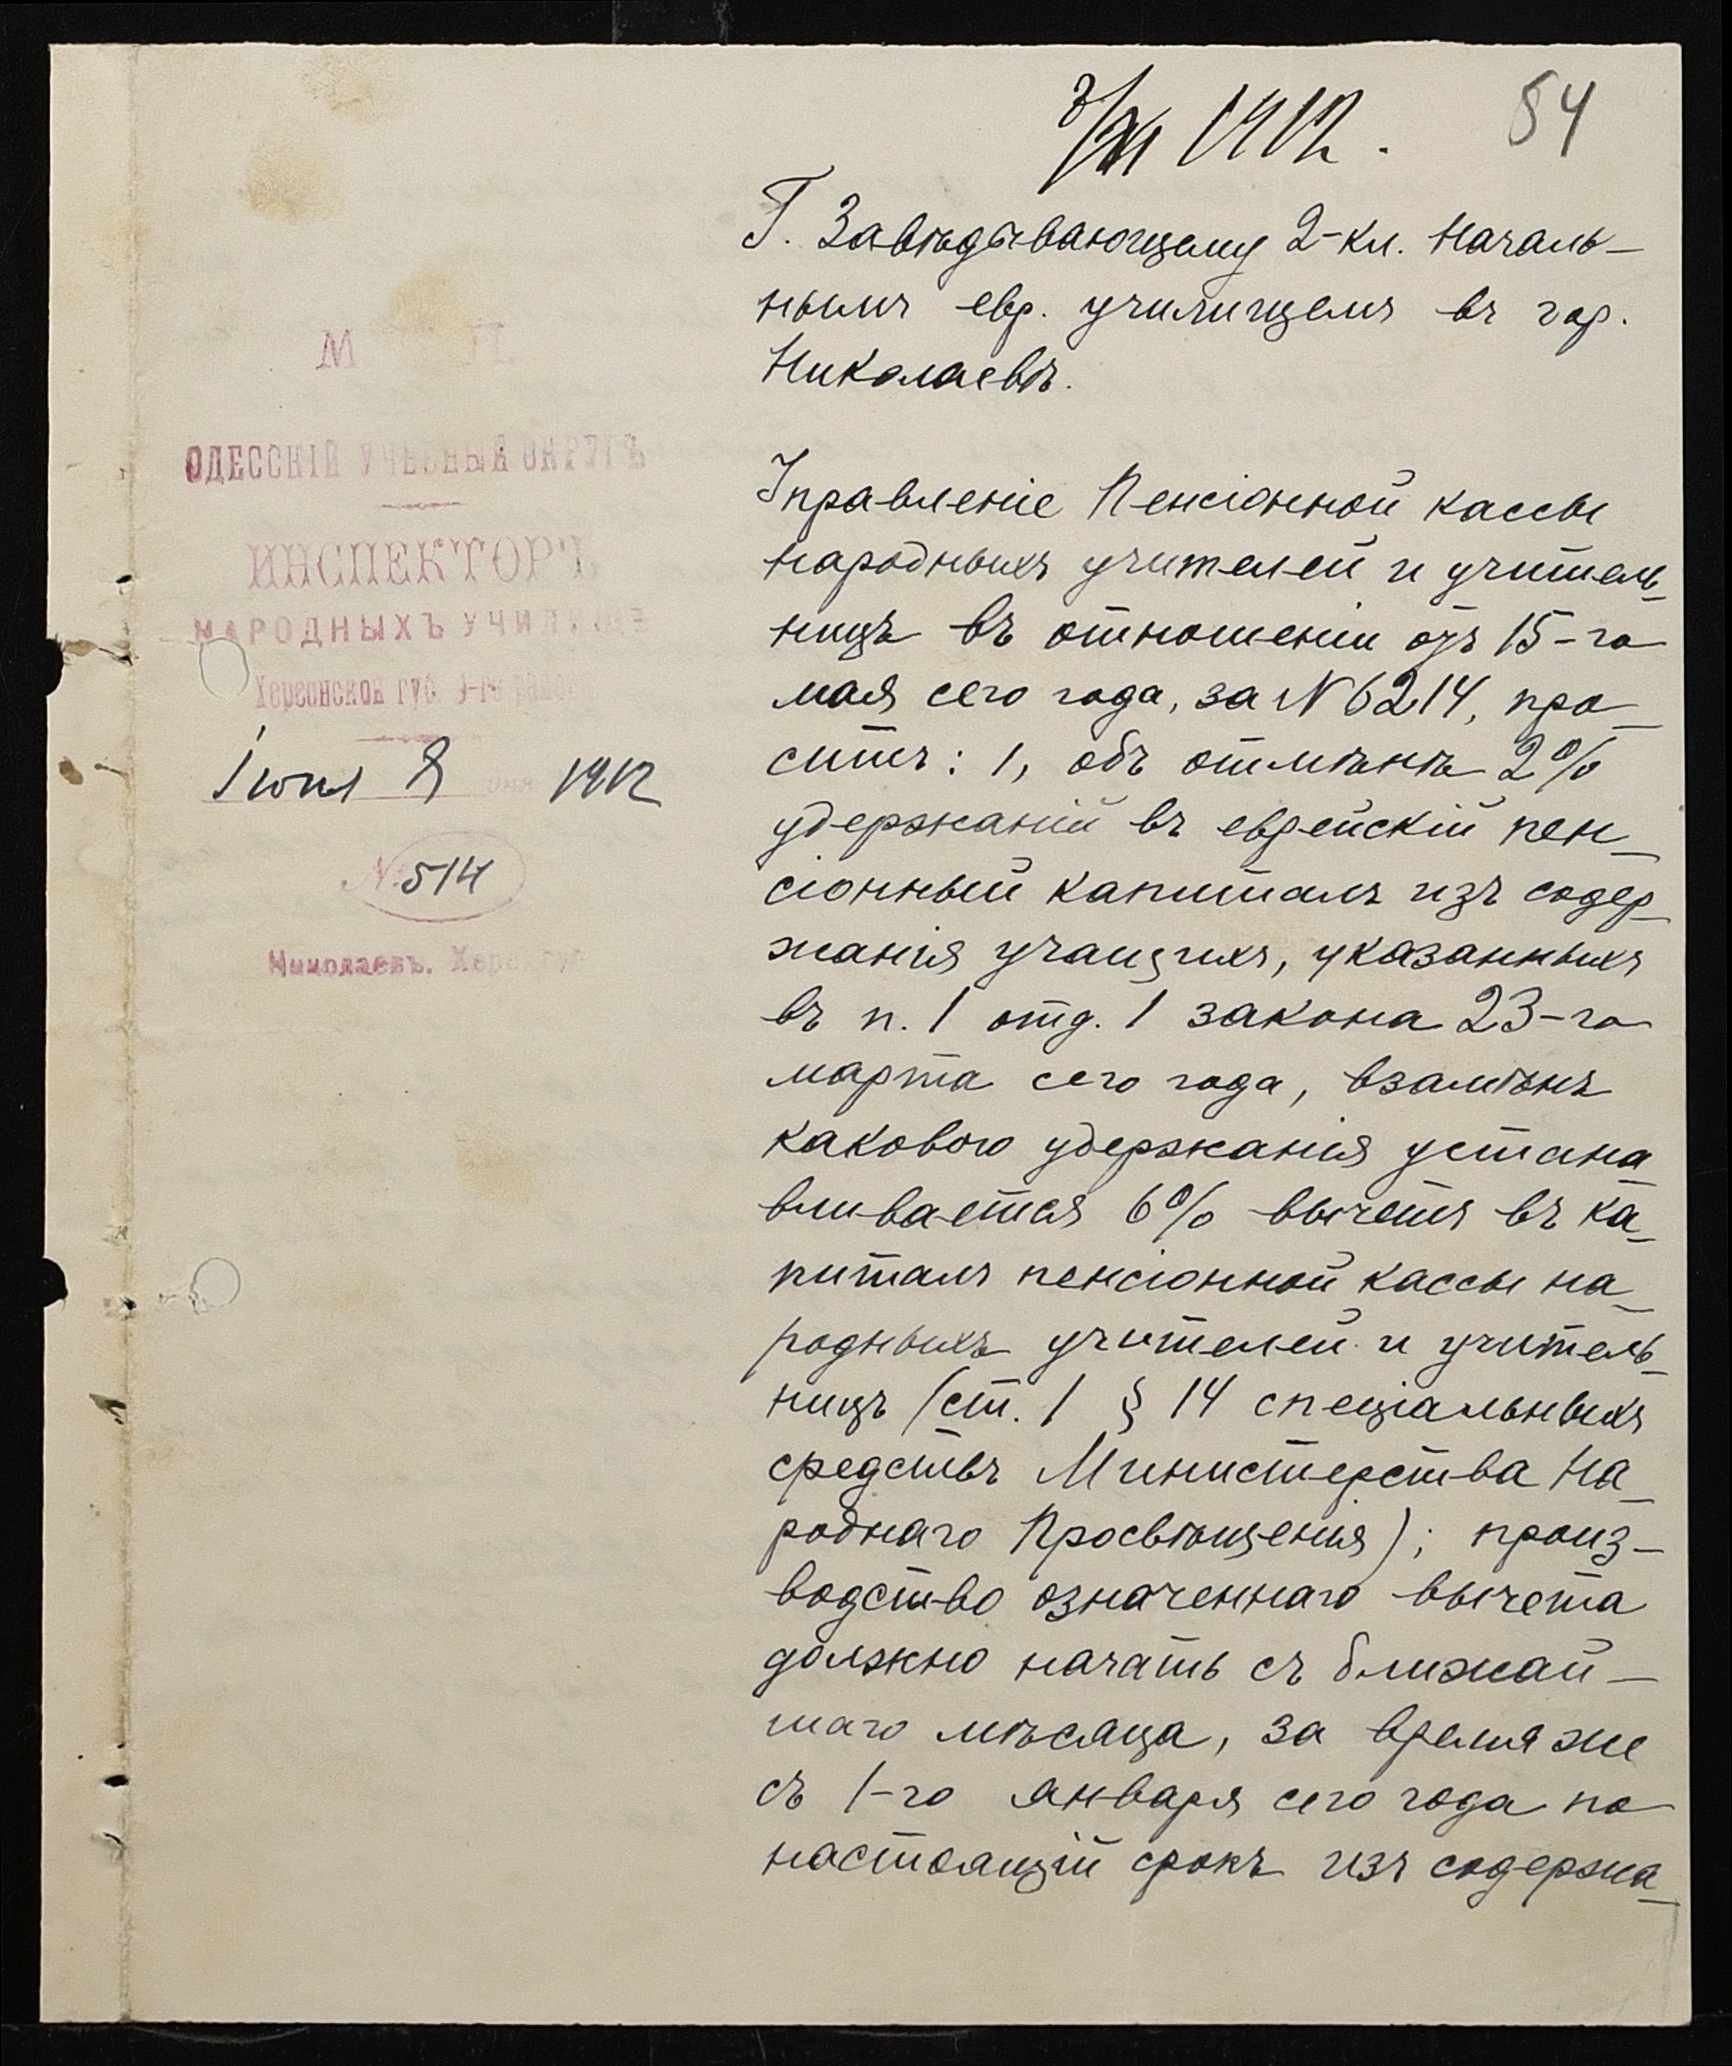 84
1912.
М П
ОДЕССКІЙ УЧЕБНЫЙ ОКРУГЪ
ИНСПЕКТОРЪ
НАРОДНЫХЪ УЧИЛИЩЪ
Херсонской губ.
Іюня 8 дня 1912
№ 514
Николаевъ, Херс. губ.
Г. Завѣдывающему 2-кл. Началь-
нымъ евр. училищемъ въ гор.
Николаевѣ.
Управленіе Пенсіонной кассы
народныхъ учителей и учитель-
ницъ въ отношеніи отъ 15-го
мая сего года, за № 6214, про-
ситъ: 1, объ отмѣнѣ 2%
удержаній въ еврейскій пен-
сіонный капиталъ изъ содер-
жанія учащихъ, указанныхъ
въ п. 1 отд. 1 закона 23-го
марта сего года, взамѣнъ
какового удержанія устана-
вливается 6% вычетъ въ ка-
питалъ пенсіонной кассы на-
родныхъ учителей и учитель-
ницъ (ст. 1 § 14 спеціальныхъ
средствъ Министерства На-
роднаго Просвѣщенія); произ-
водство означеннаго вычета
должно начать съ ближай-
шаго мѣсяца, за время же
съ 1-го января сего года по
настоящій срокъ изъ содержа-